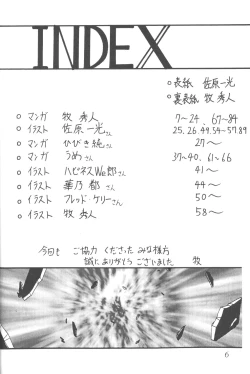 INDEX
○表紙 佐原一光
○裏表紙 牧 秀人
○マンガ 牧 秀人 7〜24、67〜84
○イラスト 佐原一光さん 25,26.49.54〜57.89
○マンガ ひびき純さん 27〜
○マンガ うめさん 37〜40、61〜66
○イラスト ハピネスWe郎さん 41〜
○イラスト 華乃 郁さん 44〜
○イラスト フレッド・ケリーさん 50〜
○イラスト 牧 秀人 58〜
今回も ご協力 くださった みな様方
誠に ありがとう ございました 牧
6